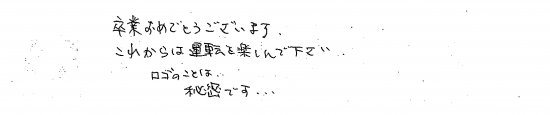 卒業おめでとうございます.
これからは運転を楽しんで下さい..
ロゴのことは..
秘密です...